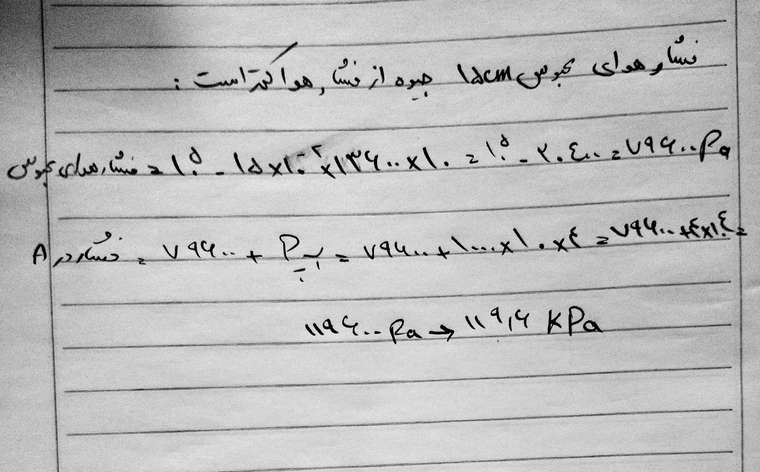 فشار هوای محبوس ۱۵cm جیوه از فشار هوا کمتر است :
فشار هوای محبوس = ۱۰⁵ - ۱۵×۱۰⁻²×۱۳۶۰۰×۱۰ = ۱۰⁵ - ۲۰٤۰۰ = ۷۹۶۰۰ Pa
فشار در A = ۷۹۶۰۰ + Pآب = ۷۹۶۰۰ + ۱۰۰۰×۱۰×٤ = ۷۹۶۰۰ + ٤×۱۰٤ =
۱۱۹۶۰۰ Pa → ۱۱۹,۶ KPa